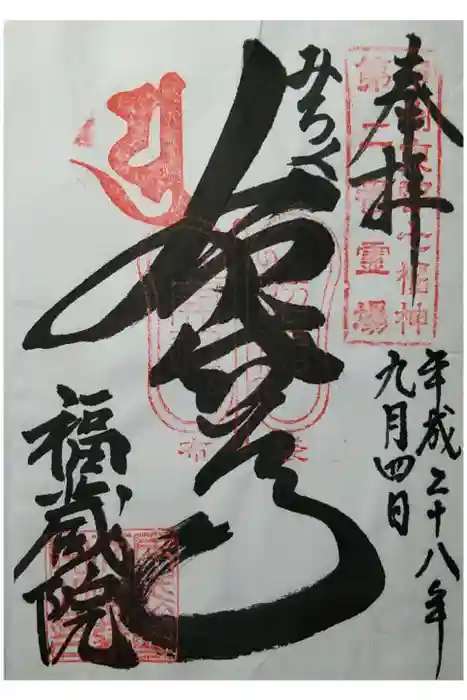 奉拝
平成二十八年
九月四日
七福神
第二番霊場
みろく
布袋尊
福蔵院